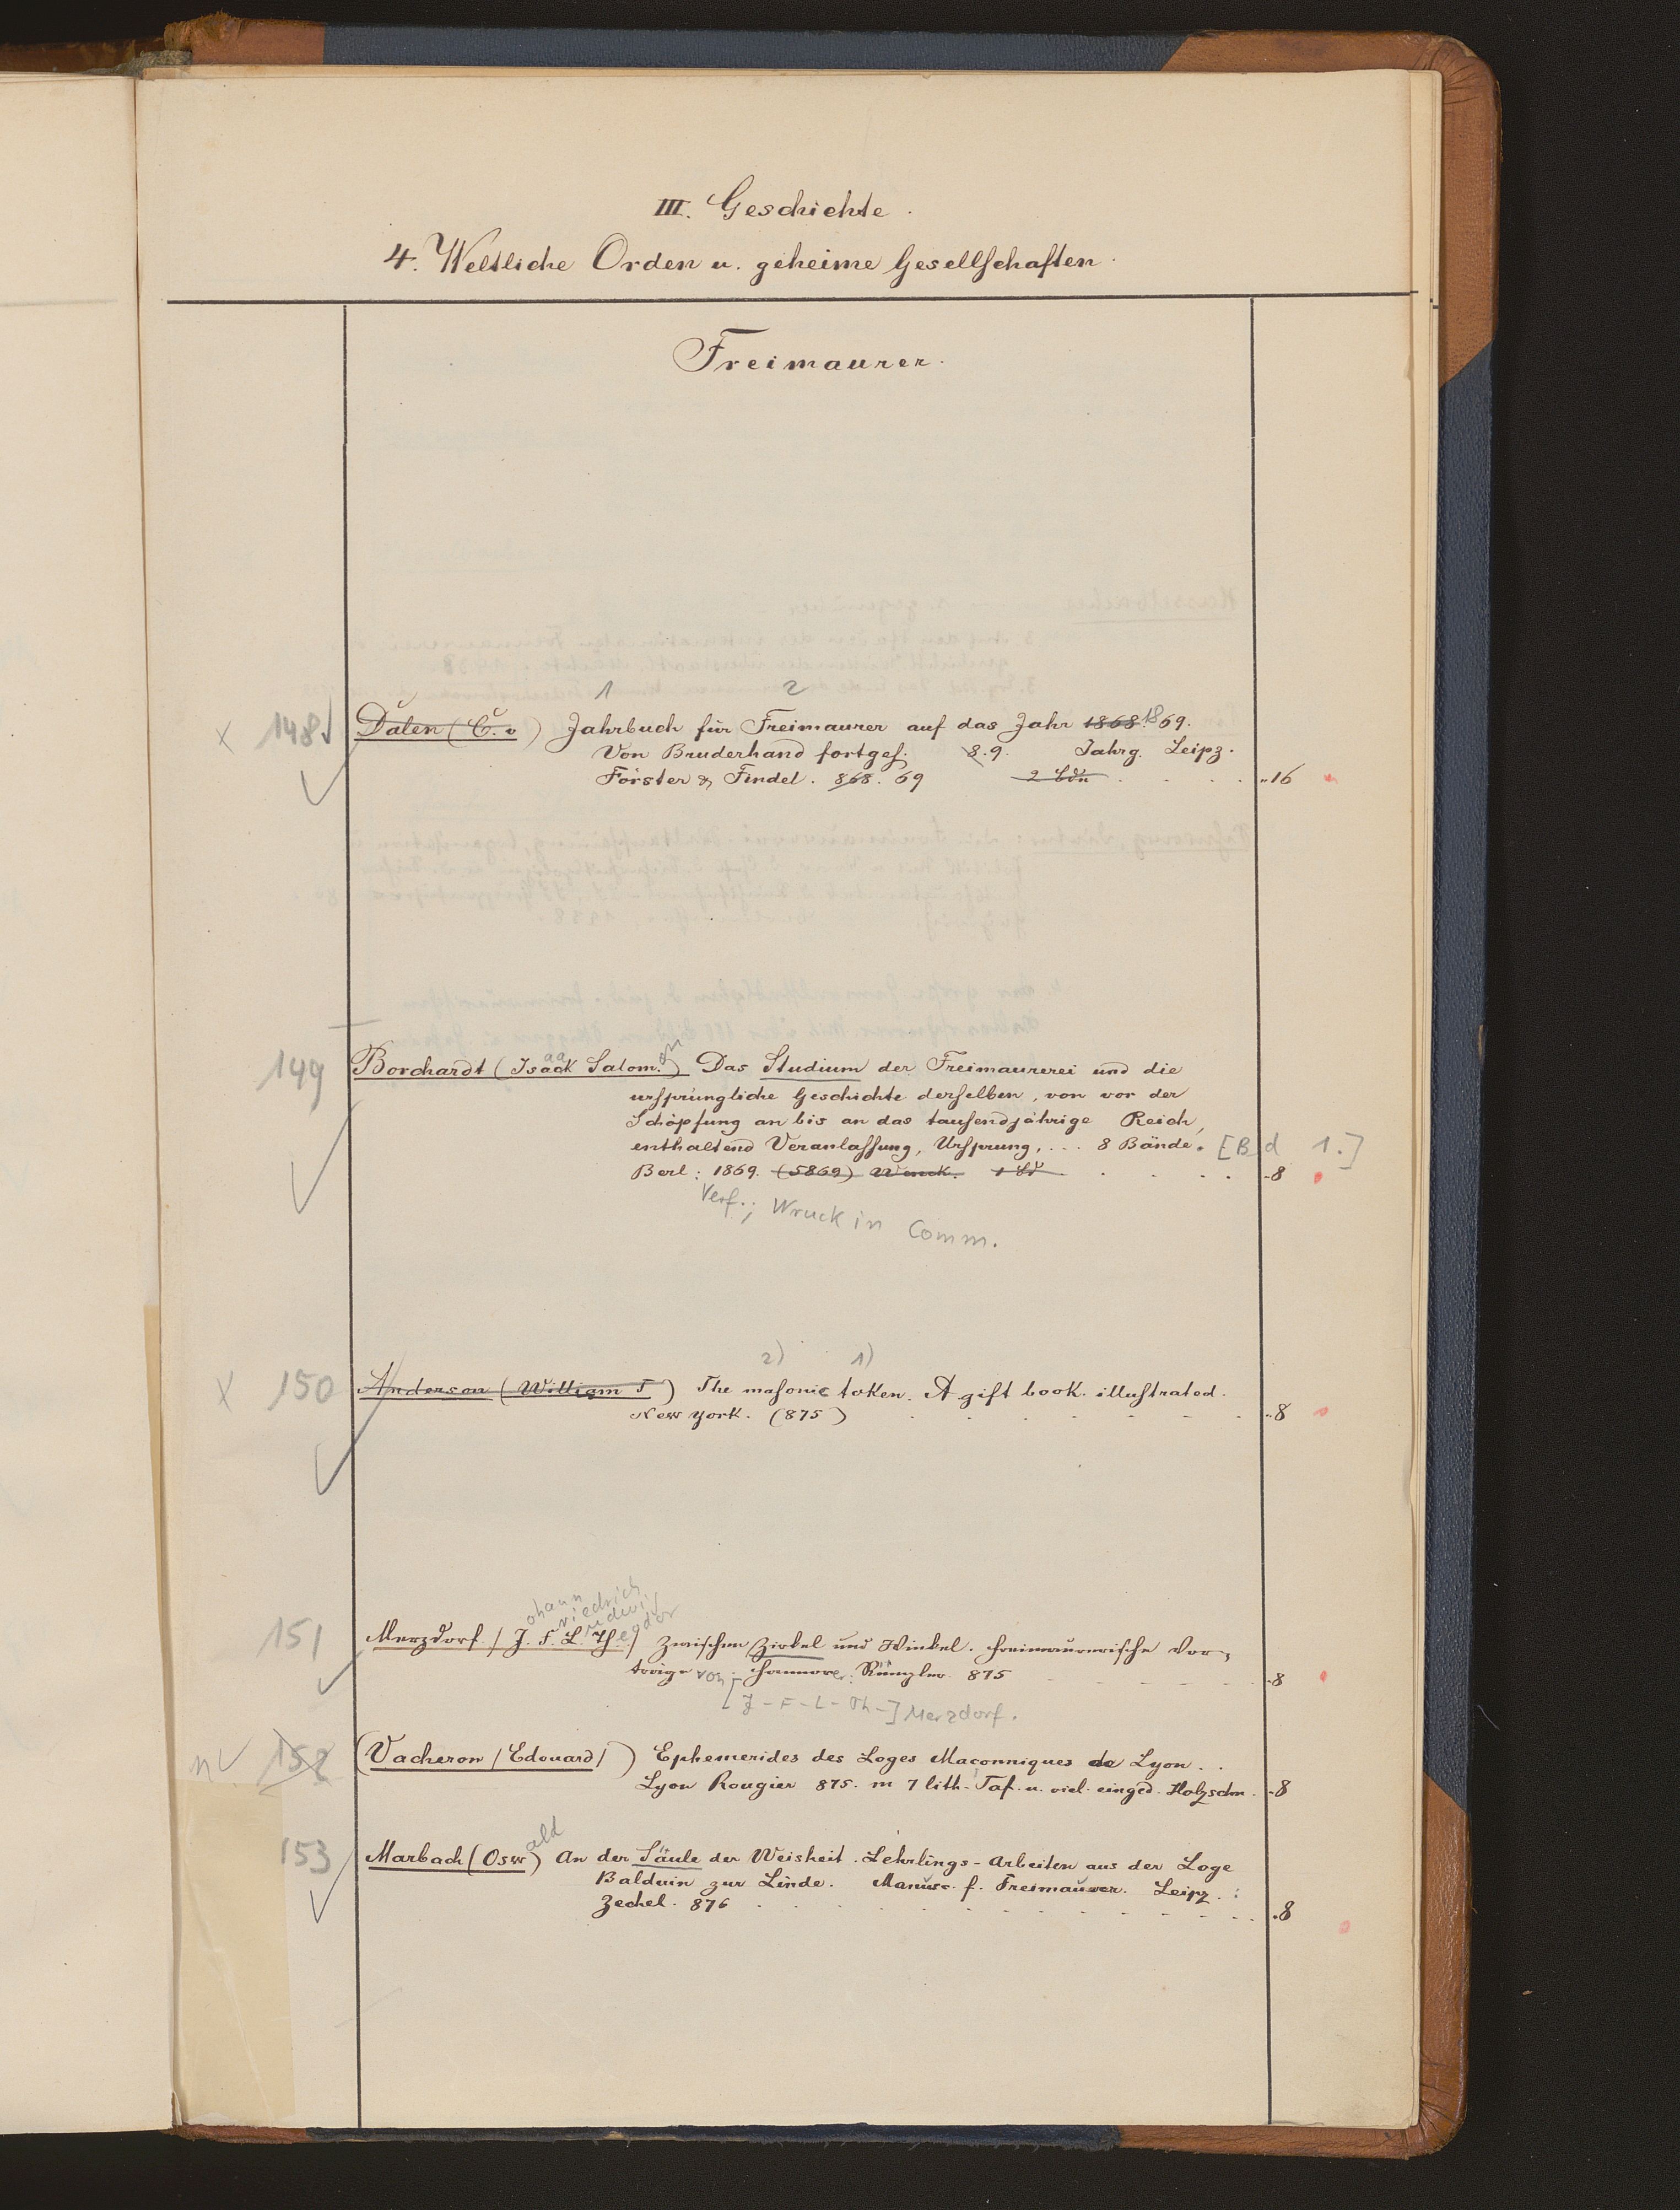 III. Geschichte.
4. Weltliche Orden u. geheime Gesellschaften.
Freimaurer.
1 2
x 148 Dalen (C. v) Jahrbuch für Freimaurer auf das Jahr 1868. 1869.
Von Bruderhand fortges. 8.9. Jahrg. Leipz.
Förster & Findel. 868. 69 2 Bdn . . . . "16
149 Borchardt (Isaack Salom.) Das Studium der Freimaurerei und die
ursprüngliche Geschichte derselben, von vor der
Schöpfung an bis an das tausendjährige Reich,
enthaltend Veranlassung, Ursprung, ... 8 Bände. [Bd 1.]
Berl: 1869. (5869) Wruck. 1 Bd . . . . -8
Verf.; Wruck in Comm.
2) 1)
x 150 Anderson (William T) The masonic token. A gift book illustrated.
New York. (875) . . . . . . "8
ohann riedrich udwig eodor
151 Merzdorf / J. F. L. Th. / Zwischen Zirkel und Winkel. Freimaurerische Vor-
träge von Hannover: Rümpler 875 - - - - - -8
[J-F-L-Th-] Merzdorf.
n 152 (Vacheron / Edouard /) Ephemerides des Loges Maconniques de Lyon . .
Lyon Rougier 875. m 7 lith. Taf. u. viel. einged. Holzschn. -8
153 Marbach (Oswald) An der Säule der Weisheit. Lehrlings-Arbeiten aus der Loge
Balduin zur Linde. Manusc. f. Freimaurer. Leipz.:
Zechel. 876 . . . . . . . .8